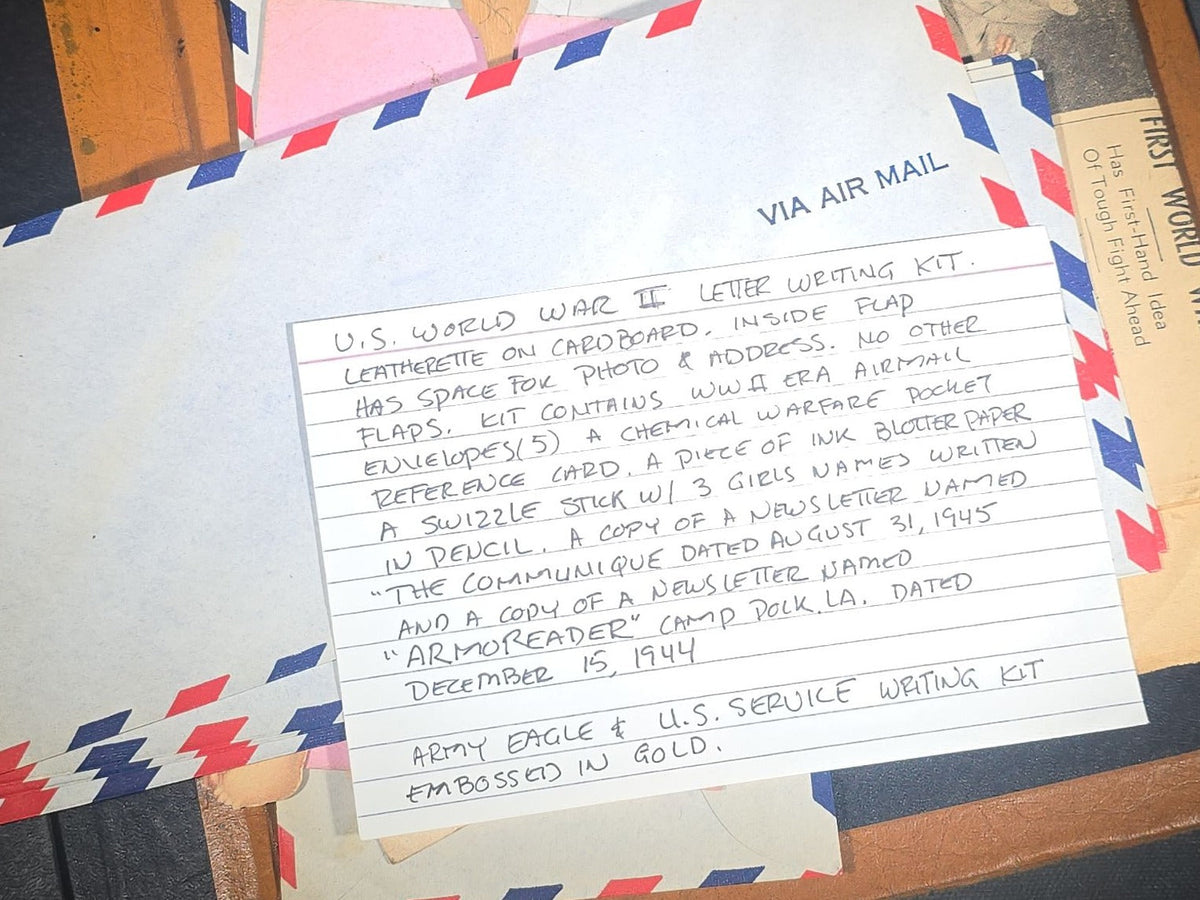 VIA AIR MAIL
FIRST WORLD
Has First-Hand Idea
Of Tough Fight Ahead
U.S. WORLD WAR II LETTER WRITING KIT.
LEATHERETTE ON CARDBOARD. INSIDE FLAP
HAS SPACE FOR PHOTO & ADDRESS. NO OTHER
FLAPS. KIT CONTAINS WWII ERA AIRMAIL
ENVELOPES(5) A CHEMICAL WARFARE POCKET
REFERENCE CARD. A PIECE OF INK BLOTTER PAPER
A SWIZZLE STICK W/ 3 GIRLS NAMES WRITTEN
IN PENCIL. A COPY OF A NEWSLETTER NAMED
"THE COMMUNIQUE DATED AUGUST 31, 1945
AND A COPY OF A NEWSLETTER NAMED
"ARMOREADER" CAMP POLK, LA. DATED
DECEMBER 15, 1944
ARMY EAGLE & U.S. SERVICE WRITING KIT
EMBOSSED IN GOLD.